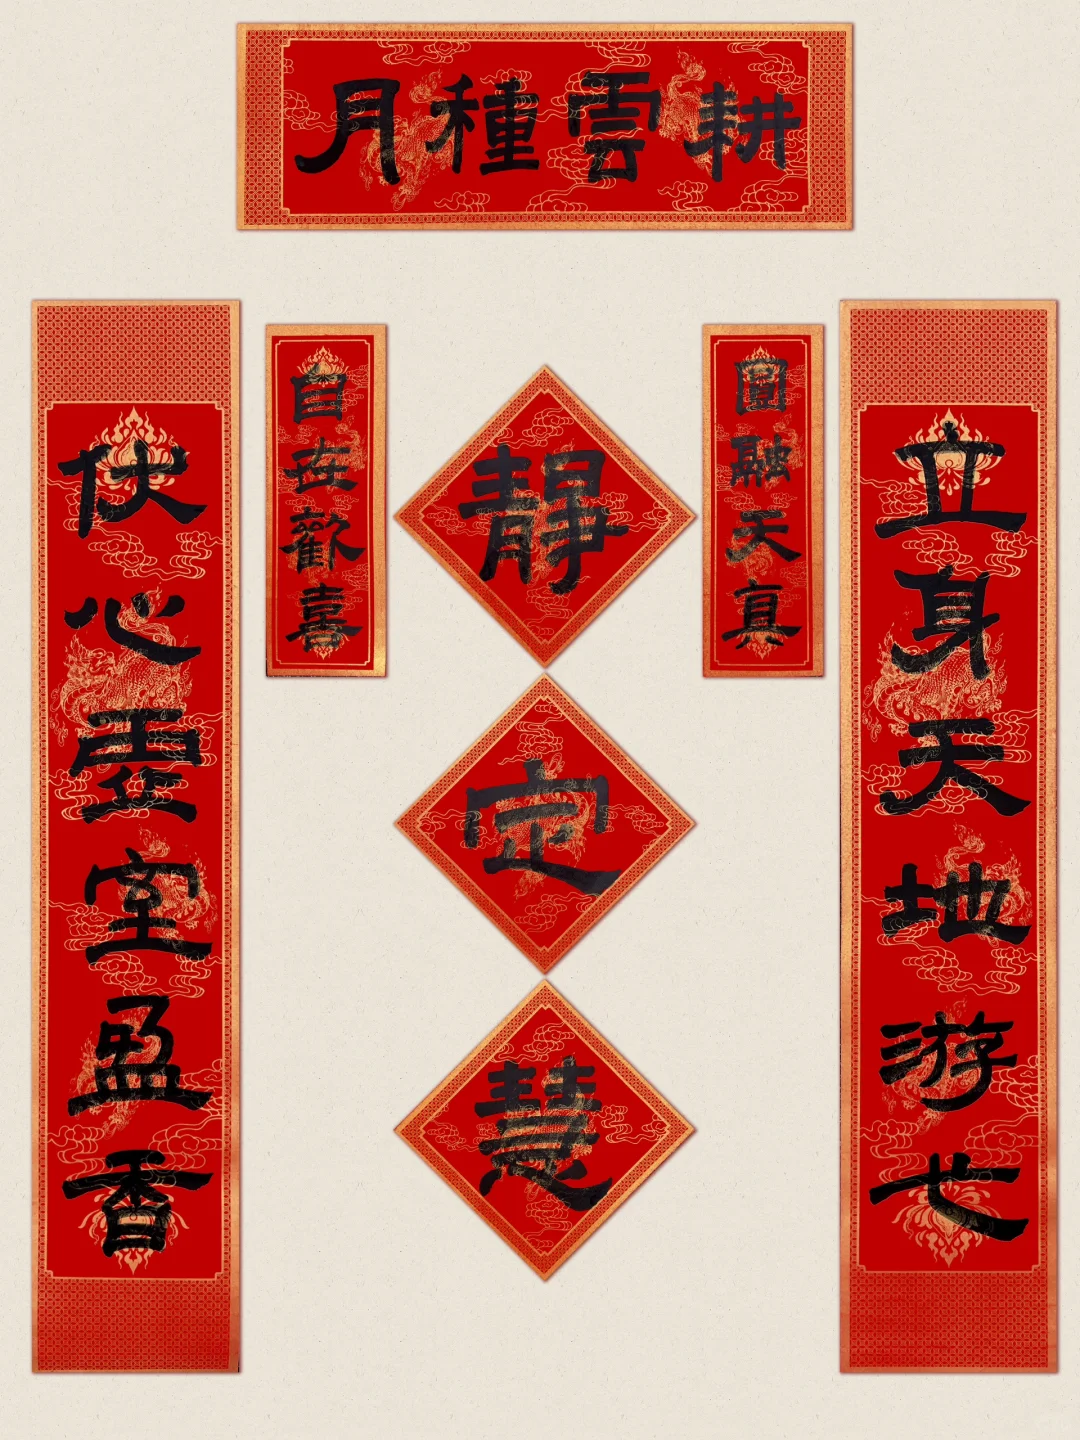 耕雲種月
立身天地游弋
伏心霊室盈香
圓融天真
自在歡喜
靜
定
慧